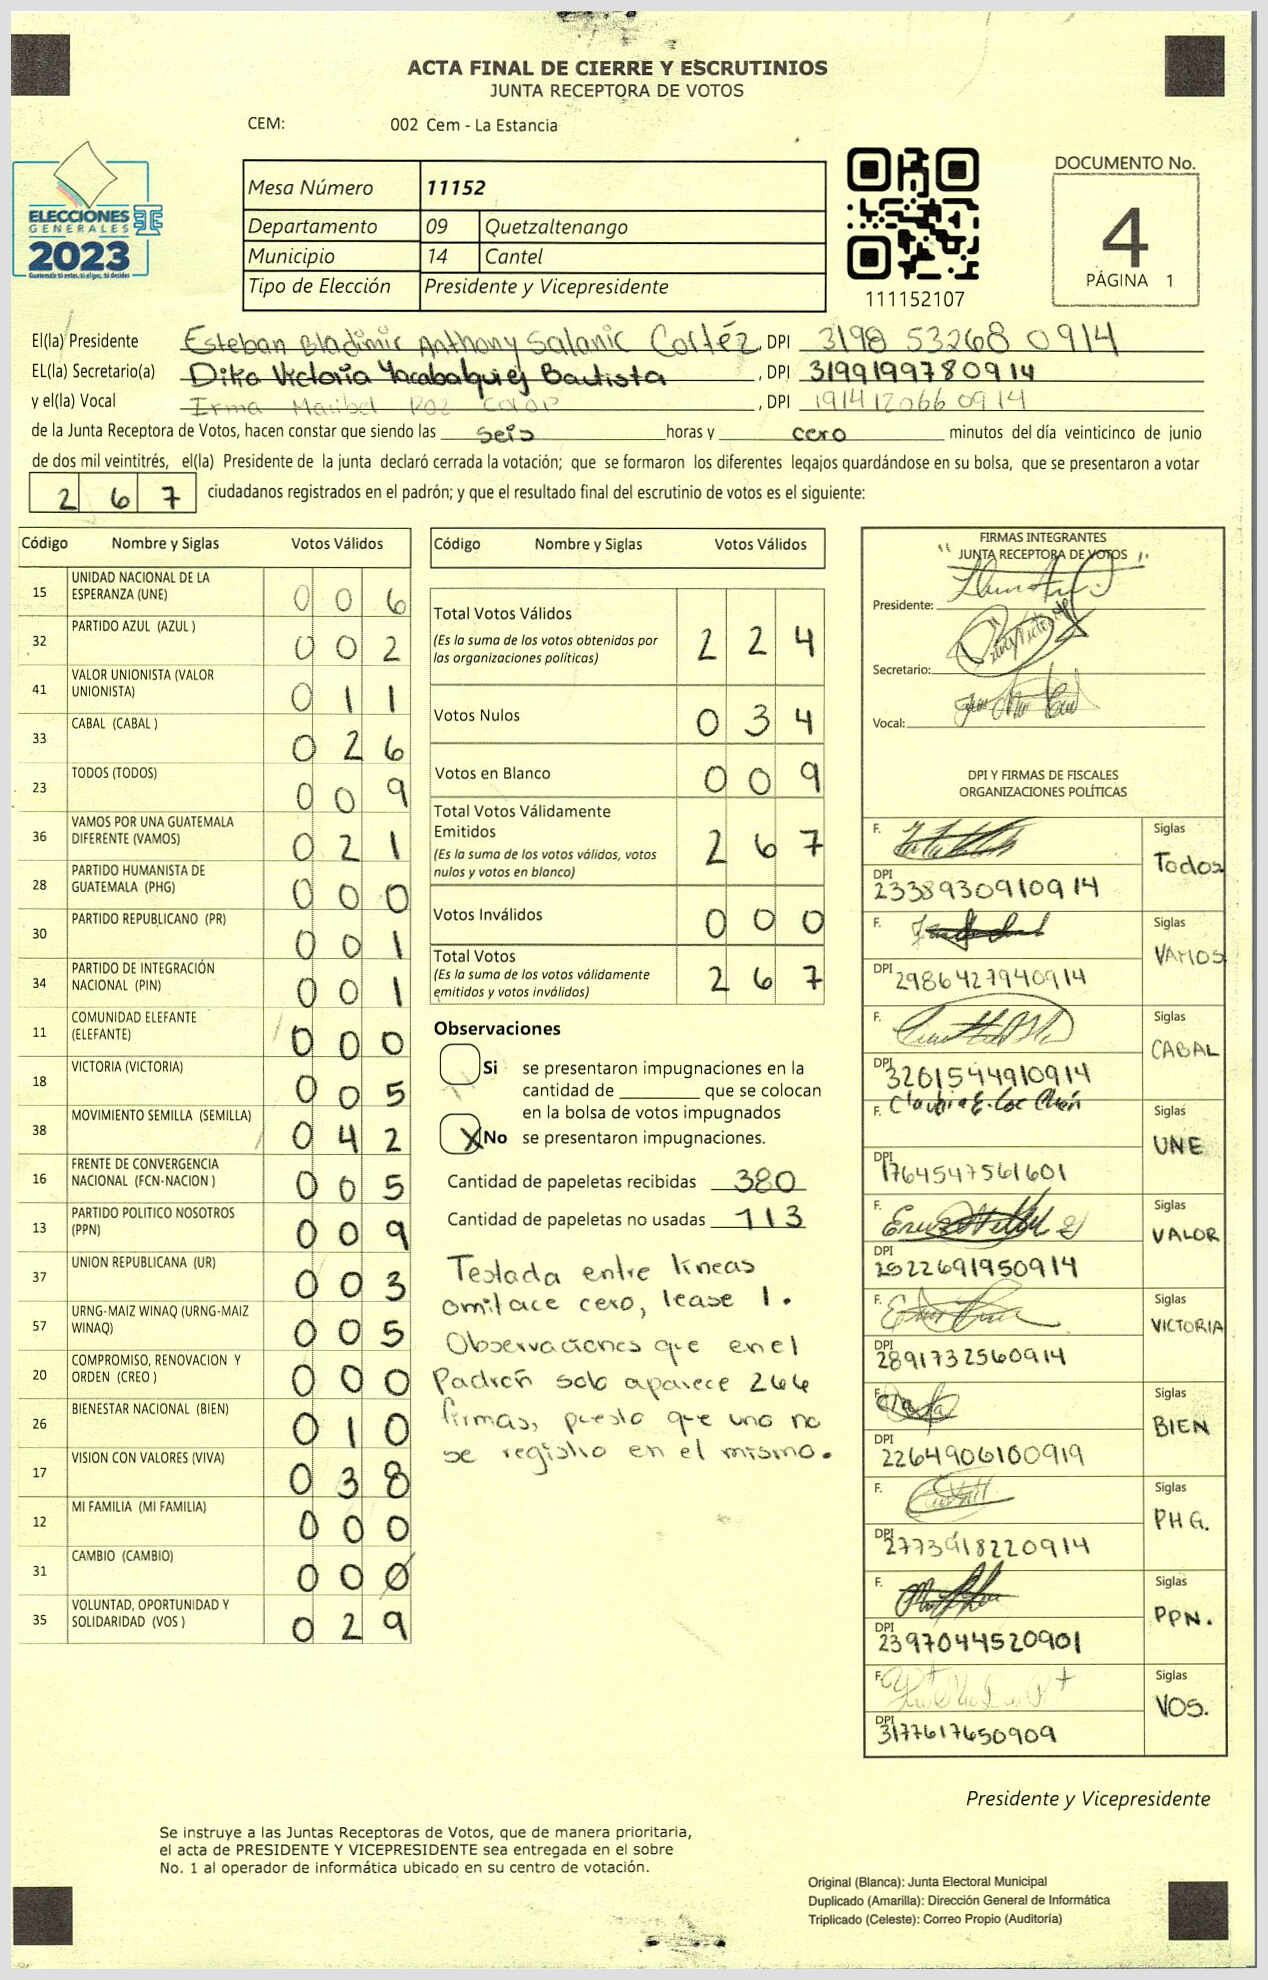 ACTA FINAL DE CIERRE Y ESCRUTINIOS
JUNTA RECEPTORA DE VOTOS
CEM: 002 Cem - La Estancia
ELECCIONES
GENERALES
2023
Mesa Número 11152
Departamento 09 Quetzaltenango
Municipio 14 Cantel
Tipo de Elección Presidente y Vicepresidente
111152107
DOCUMENTO No.
4
PÁGINA 1
El(la) Presidente Esteban Bladimir Anthony Salanic Cortéz, DPI 3198 53268 0914
EL(la) Secretario(a) Victoria Bautista, DPI 3199199780914
y el(la) Vocal Irma Maribel, DPI 1914120660914
de la Junta Receptora de Votos, hacen constar que siendo las seis horas y cero minutos del día veinticinco de junio
de dos mil veintitrés, el(la) Presidente de la junta declaró cerrada la votación; que se formaron los diferentes legajos guardándose en su bolsa, que se presentaron a votar
2 6 7 ciudadanos registrados en el padrón; y que el resultado final del escrutinio de votos es el siguiente:
Código Nombre y Siglas Votos Válidos
15 UNIDAD NACIONAL DE LA ESPERANZA (UNE) 0 0 6
32 PARTIDO AZUL (AZUL ) 0 0 2
41 VALOR UNIONISTA (VALOR UNIONISTA) 0 1 1
33 CABAL (CABAL ) 0 2 6
23 TODOS (TODOS) 0 0 9
36 VAMOS POR UNA GUATEMALA DIFERENTE (VAMOS) 0 2 1
28 PARTIDO HUMANISTA DE GUATEMALA (PHG) 0 0 0
30 PARTIDO REPUBLICANO (PR) 0 0 1
34 PARTIDO DE INTEGRACIÓN NACIONAL (PIN) 0 0 1
11 COMUNIDAD ELEFANTE (ELEFANTE) 0 0 0
18 VICTORIA (VICTORIA) 0 0 5
38 MOVIMIENTO SEMILLA (SEMILLA) 0 4 2
16 FRENTE DE CONVERGENCIA NACIONAL (FCN-NACION ) 0 0 5
13 PARTIDO POLITICO NOSOTROS (PPN) 0 0 9
37 UNION REPUBLICANA (UR) 0 0 3
57 URNG-MAIZ WINAQ (URNG-MAIZ WINAQ) 0 0 5
20 COMPROMISO, RENOVACION Y ORDEN (CREO ) 0 0 0
26 BIENESTAR NACIONAL (BIEN) 0 1 0
17 VISION CON VALORES (VIVA) 0 3 8
12 MI FAMILIA (MI FAMILIA) 0 0 0
31 CAMBIO (CAMBIO) 0 0 0
35 VOLUNTAD, OPORTUNIDAD Y SOLIDARIDAD (VOS ) 0 2 9
Código Nombre y Siglas Votos Válidos
Total Votos Válidos 2 2 4
(Es la suma de los votos obtenidos por
las organizaciones políticas)
Votos Nulos 0 3 4
Votos en Blanco 0 0 9
Total Votos Válidamente
Emitidos 2 6 7
(Es la suma de los votos válidos, votos
nulos y votos en blanco)
Votos Inválidos 0 0 0
Total Votos 2 6 7
(Es la suma de los votos válidamente
emitidos y votos inválidos)
Observaciones
Si se presentaron impugnaciones en la
cantidad de ________ que se colocan
en la bolsa de votos impugnados
X No se presentaron impugnaciones.
Cantidad de papeletas recibidas 380
Cantidad de papeletas no usadas 113
Testada entre lineas
omitace cero, lease 1.
Observaciones que en el
Padron solo aparece 266
firmas, puesto que uno no
se registro en el mismo.
FIRMAS INTEGRANTES
JUNTA RECEPTORA DE VOTOS
Presidente:
Secretario:
Vocal:
DPI Y FIRMAS DE FISCALES
ORGANIZACIONES POLÍTICAS
F. Siglas Todos
DPI 2338930910914
F. Siglas VAMOS
DPI 2986427940914
F. Siglas CABAL
DPI 3261544910914
F. Siglas UNE
DPI 1764547561601
F. Siglas VALOR
DPI 2522691950914
F. Siglas VICTORIA
DPI 2891732560914
F. Siglas BIEN
DPI 2264906100919
F. Siglas PHG.
DPI 2773918220914
F. Siglas PPN.
DPI 2397044520901
F. Siglas VOS.
DPI 3177617650909
Presidente y Vicepresidente
Se instruye a las Juntas Receptoras de Votos, que de manera prioritaria,
el acta de PRESIDENTE Y VICEPRESIDENTE sea entregada en el sobre
No. 1 al operador de informática ubicado en su centro de votación.
Original (Blanca): Junta Electoral Municipal
Duplicado (Amarilla): Dirección General de Informática
Triplicado (Celeste): Correo Propio (Auditoría)